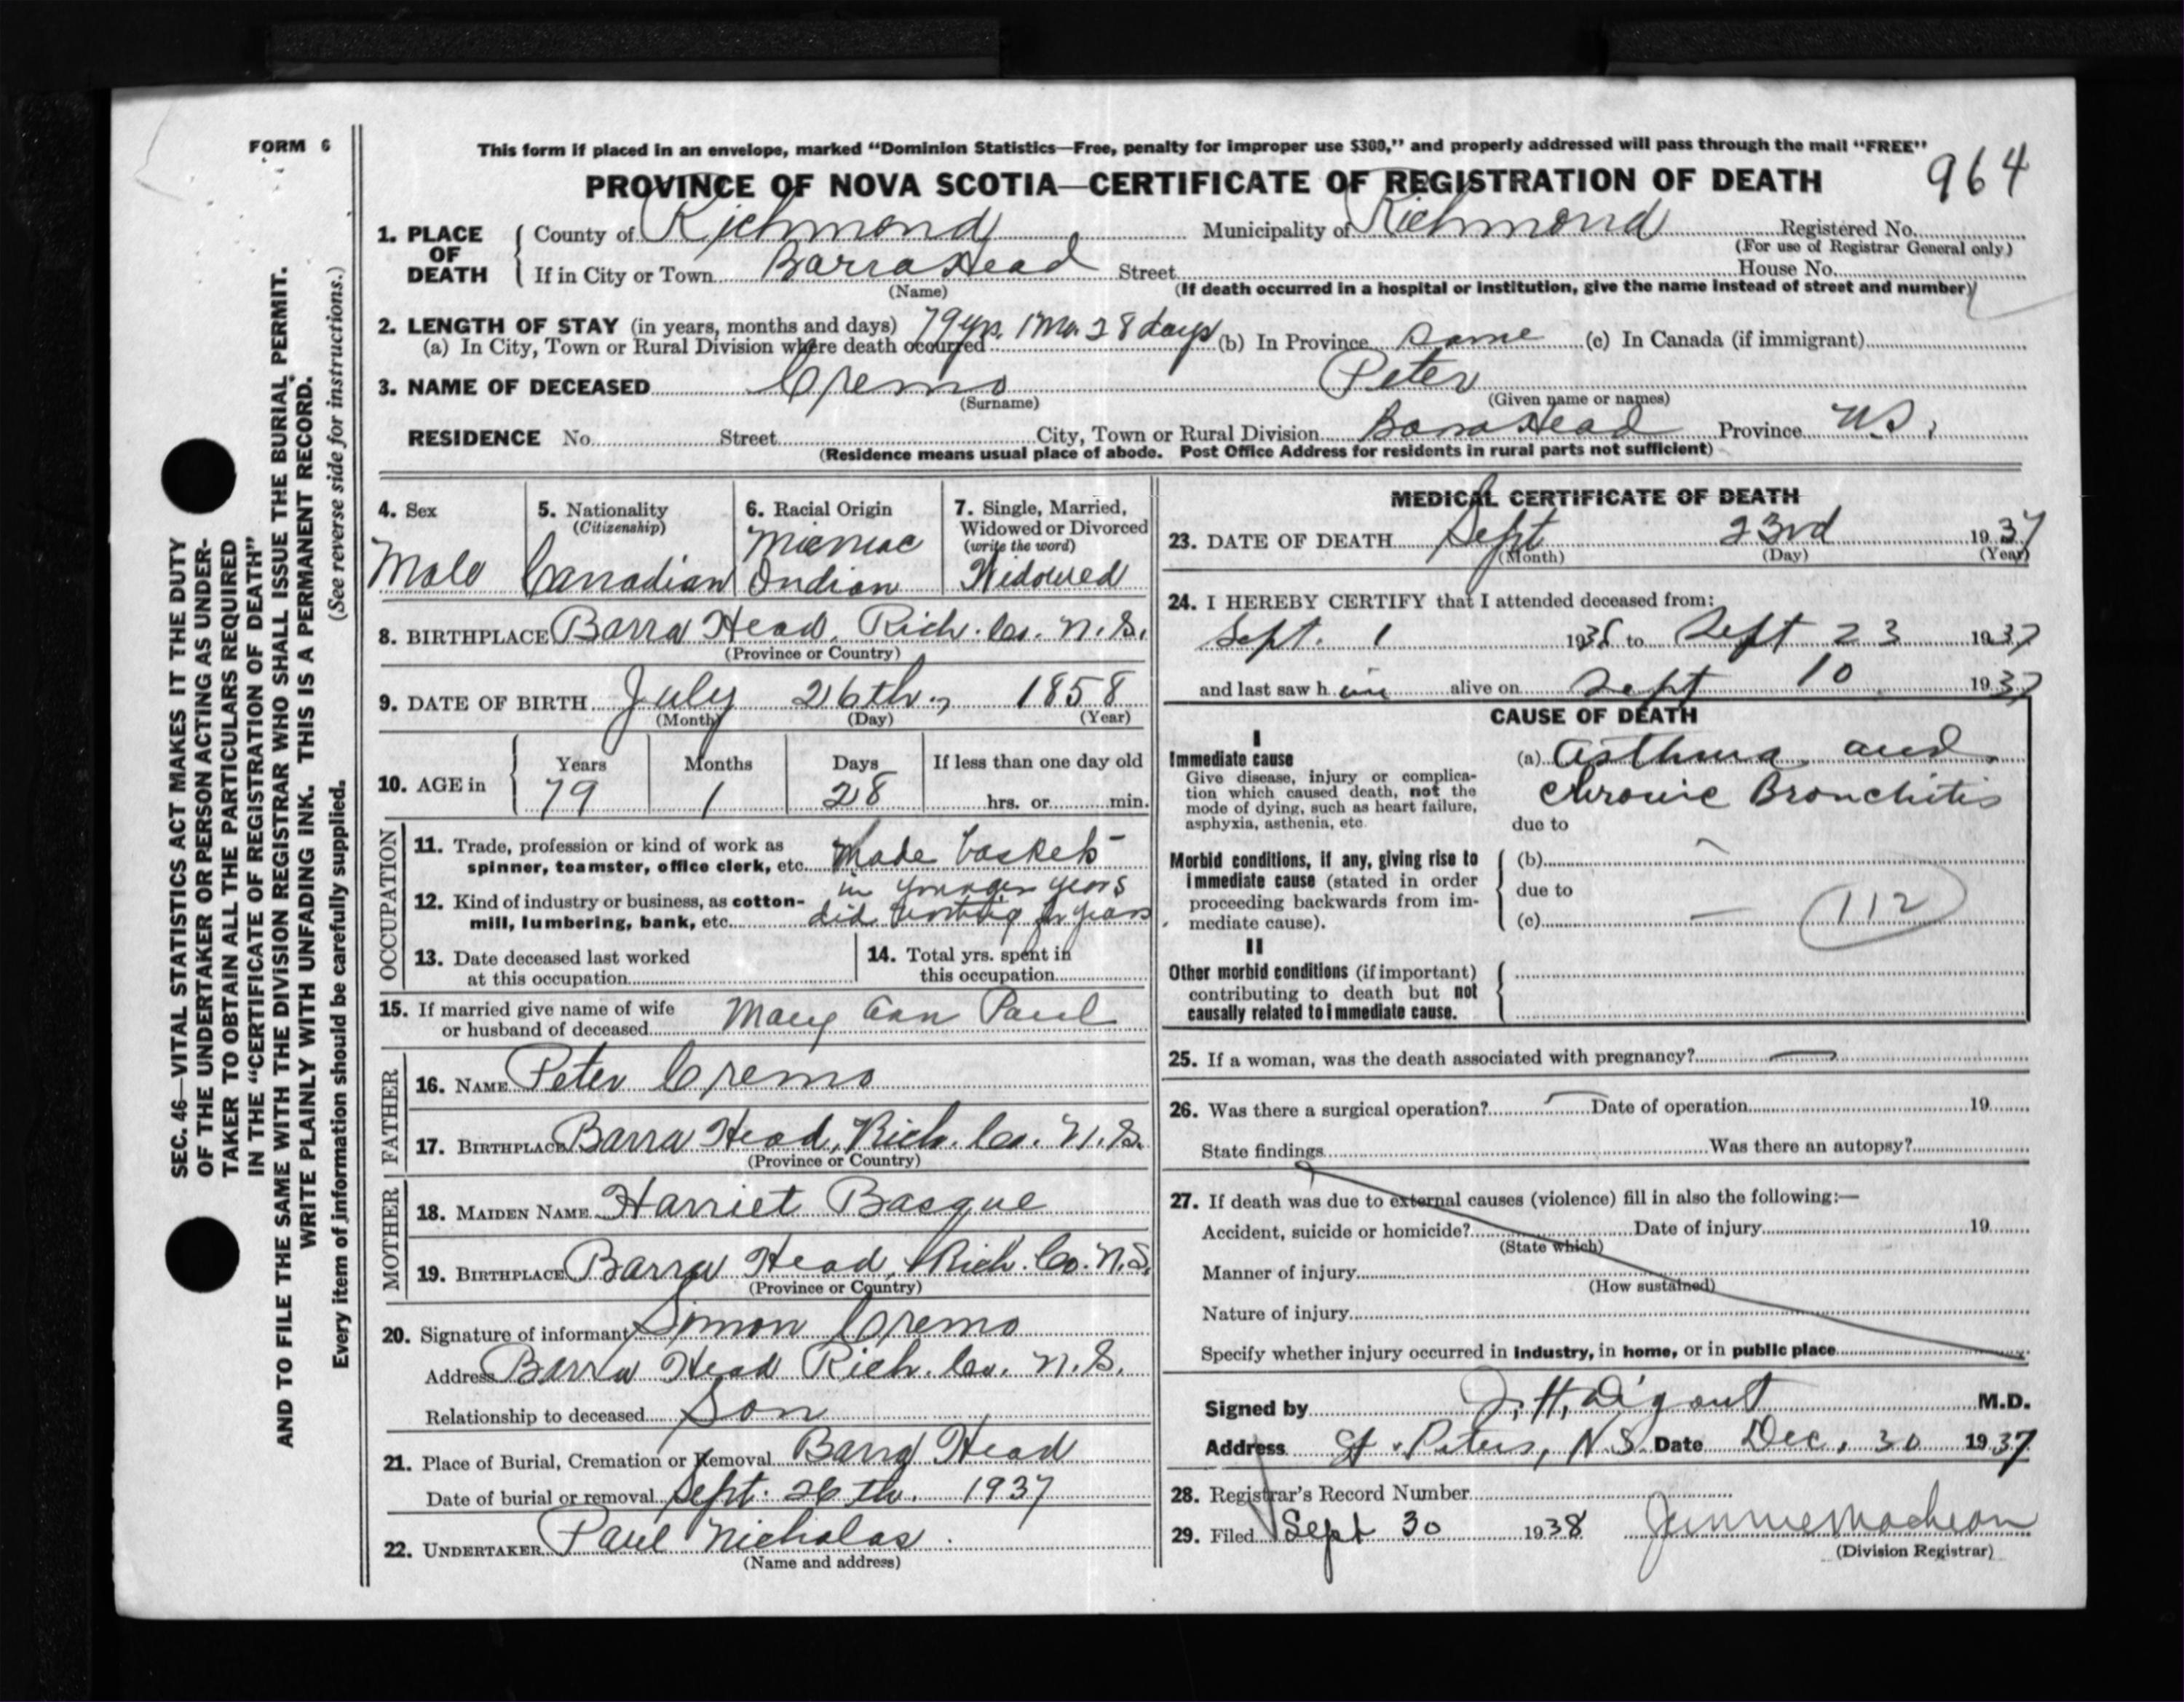 FORM 6
This form if placed in an envelope, marked “Dominion Statistics—Free, penalty for improper use $300,” and properly addressed will pass through the mail “FREE”
PROVINCE OF NOVA SCOTIA—CERTIFICATE OF REGISTRATION OF DEATH
964
1. PLACE OF DEATH
County of Richmond Municipality of Richmond Registered No.
(For use of Registrar General only)
If in City or Town Barra Head Street House No.
(Name) (If death occurred in a hospital or institution, give the name instead of street and number)
2. LENGTH OF STAY (in years, months and days) 79 yrs. 1 Mo. 28 days
(a) In City, Town or Rural Division where death occurred (b) In Province same (c) In Canada (if immigrant)
3. NAME OF DECEASED Cremo Peter
(Surname) (Given name or names)
RESIDENCE No. Street City, Town or Rural Division Barra Head Province N.S.
(Residence means usual place of abode. Post Office Address for residents in rural parts not sufficient)
4. Sex
Male
5. Nationality
(Citizenship)
Canadian
6. Racial Origin
Micmac
Indian
7. Single, Married,
Widowed or Divorced
(write the word)
Widowed
8. BIRTHPLACE Barra Head, Rich. Co. N.S.
(Province or Country)
9. DATE OF BIRTH July 26th, 1858
(Month) (Day) (Year)
10. AGE in
Years Months Days If less than one day old
79 1 28 hrs. or min.
OCCUPATION
11. Trade, profession or kind of work as
spinner, teamster, office clerk, etc. Made baskets
in younger years
12. Kind of industry or business, as cotton-
mill, lumbering, bank, etc. did for years
13. Date deceased last worked
at this occupation
14. Total yrs. spent in
this occupation
15. If married give name of wife
or husband of deceased Mary Ann Paul
FATHER
16. NAME Peter Cremo
17. BIRTHPLACE Barra Head, Rich. Co. N.S.
(Province or Country)
MOTHER
18. MAIDEN NAME Harriet Basque
19. BIRTHPLACE Barra Head, Rich. Co. N.S.
(Province or Country)
20. Signature of informant Simon Cremo
Address Barra Head Rich. Co. N.S.
Relationship to deceased Son
21. Place of Burial, Cremation or Removal Barra Head
Date of burial or removal Sept. 26th. 1937
22. UNDERTAKER Paul Nicholas.
(Name and address)
MEDICAL CERTIFICATE OF DEATH
23. DATE OF DEATH Sept 23rd 1937
(Month) (Day) (Year)
24. I HEREBY CERTIFY that I attended deceased from:
Sept. 1 193 to Sept 23 1937
and last saw h im alive on Sept 10 1937
CAUSE OF DEATH
I
Immediate cause
Give disease, injury or complica-
tion which caused death, not the
mode of dying, such as heart failure,
asphyxia, asthenia, etc.
(a) Asthma and
Chronic Bronchitis
due to
Morbid conditions, if any, giving rise to
immediate cause (stated in order
proceeding backwards from im-
mediate cause).
(b)
due to
(c) — 112
II
Other morbid conditions (if important)
contributing to death but not
causally related to immediate cause.
25. If a woman, was the death associated with pregnancy? —
26. Was there a surgical operation? — Date of operation 19
State findings Was there an autopsy?
27. If death was due to external causes (violence) fill in also the following:—
Accident, suicide or homicide? Date of injury 19
(State which)
Manner of injury
(How sustained)
Nature of injury
Specify whether injury occurred in industry, in home, or in public place
Signed by J. H. Digout M.D.
Address St. Peters, N.S. Date Dec. 30 1937
28. Registrar's Record Number
29. Filed Sept 30 1938 Jennie
(Division Registrar)
SEC. 46—VITAL STATISTICS ACT MAKES IT THE DUTY
OF THE UNDERTAKER OR PERSON ACTING AS UNDER-
TAKER TO OBTAIN ALL THE PARTICULARS REQUIRED
IN THE “CERTIFICATE OF REGISTRATION OF DEATH”
AND TO FILE THE SAME WITH THE DIVISION REGISTRAR WHO SHALL ISSUE THE BURIAL PERMIT.
WRITE PLAINLY WITH UNFADING INK. THIS IS A PERMANENT RECORD.
Every item of information should be carefully supplied. (See reverse side for instructions.)